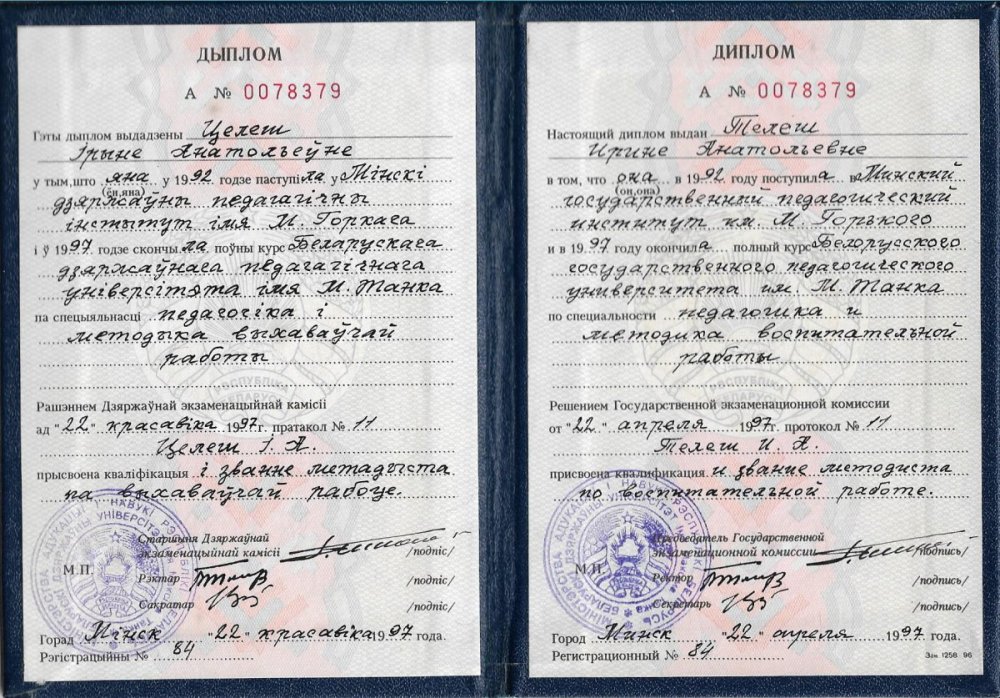 ДЫПЛОМ
А № 0078379
Гэты дыплом выдадзены Целеш
Ірыне Анатольеўне
у тым, што яна у 1992 годзе паступіла у Мінскі
(ён, яна)
дзяржаўны педагагічны
інстытут імя М. Горкага
і ў 1997 годзе скончыла поўны курс Беларускага
дзяржаўнага педагагічнага
універсітэта імя М. Танка
па спецыяльнасці педагогіка і
методыка выхаваўчай
работы
РЭСПУБЛІКА
Рашэннем Дзяржаўнай экзаменацыйнай камісіі
ад "22" красавіка 1997г. пратакол № 11
Целеш І. А.
прысвоена кваліфікацыя і званне метадыста
па выхаваўчай рабоце.
Старшыня Дзяржаўнай
экзаменацыйнай камісіі /подпіс/
М.П. Рэктар /подпіс/
Сакратар /подпіс/
Горад Мінск "22" красавіка 1997 года.
Рэгістрацыйны № 84
ДИПЛОМ
А № 0078379
Настоящий диплом выдан Телеш
Ирине Анатольевне
в том, что она в 1992 году поступила в Минский
(он, она)
государственный педагогический
институт им. М. Горького
и в 1997 году окончила полный курс Белорусского
государственного педагогического
университета им. М. Танка
по специальности педагогика и
методика воспитательной
работы
РЭСПУБЛІКА
Решением Государственной экзаменационной комиссии
от "22" апреля 1997г. протокол № 11
Телеш И. А.
присвоена квалификация и звание методиста
по воспитательной работе.
Председатель Государственной
экзаменационной комиссии /подпись/
М.П. Ректор /подпись/
Секретарь /подпись/
Город Минск "22" апреля 1997 года.
Регистрационный № 84
Зак. 1258 96